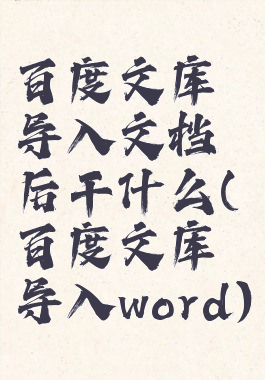 百度文库
导入文档
后干什么(
百度文库
导入word)